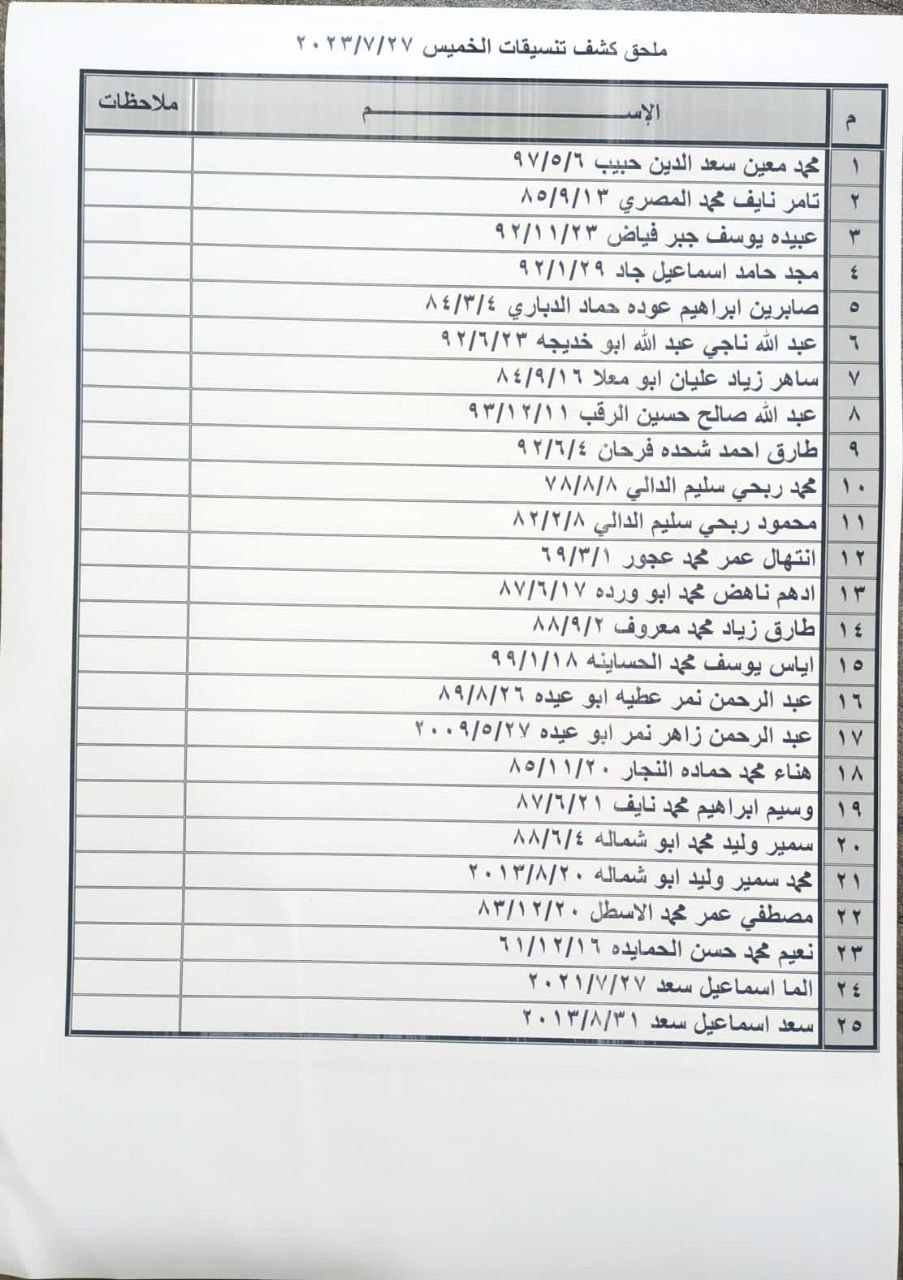 ملحق كشف تنسيقات الخميس ٢٠٢٣/٧/٢٧
م الإســـــم ملاحظات
١ محمد معين سعد الدين حبيب ٩٧/٥/٦
٢ تامر نايف محمد المصري ٨٥/٩/١٣
٣ عبيده يوسف جبر فياض ٩٢/١١/٢٣
٤ مجد حامد اسماعيل جاد ٩٢/١/٢٩
٥ صابرين ابراهيم عوده حماد الدباري ٨٤/٣/٤
٦ عبد الله ناجي عبد الله ابو خديجه ٩٢/٦/٢٣
٧ ساهر زياد عليان ابو معلا ٨٤/٩/١٦
٨ عبد الله صالح حسين الرقب ٩٣/١٢/١١
٩ طارق احمد شحده فرحان ٩٢/٦/٤
١٠ محمد ربحي سليم الدالي ٧٨/٨/٨
١١ محمود ربحي سليم الدالي ٨٢/٢/٨
١٢ انتهال عمر محمد عجور ٦٩/٣/١
١٣ ادهم ناهض محمد ابو ورده ٨٧/٦/١٧
١٤ طارق زياد محمد معروف ٨٨/٩/٢
١٥ اياس يوسف محمد الحساينه ٩٩/١/١٨
١٦ عبد الرحمن نمر عطيه ابو عيده ٨٩/٨/٢٦
١٧ عبد الرحمن زاهر نمر ابو عيده ٢٠٠٩/٥/٢٧
١٨ هناء محمد حماده النجار ٨٥/١١/٢٠
١٩ وسيم ابراهيم محمد نايف ٨٧/٦/٢١
٢٠ سمير وليد محمد ابو شماله ٨٨/٦/٤
٢١ محمد سمير وليد ابو شماله ٢٠١٣/٨/٢٠
٢٢ مصطفي عمر محمد الاسطل ٨٣/١٢/٢٠
٢٣ نعيم محمد حسن الحمايده ٦١/١٢/١٦
٢٤ الما اسماعيل سعد ٢٠٢١/٧/٢٧
٢٥ سعد اسماعيل سعد ٢٠١٣/٨/٣١